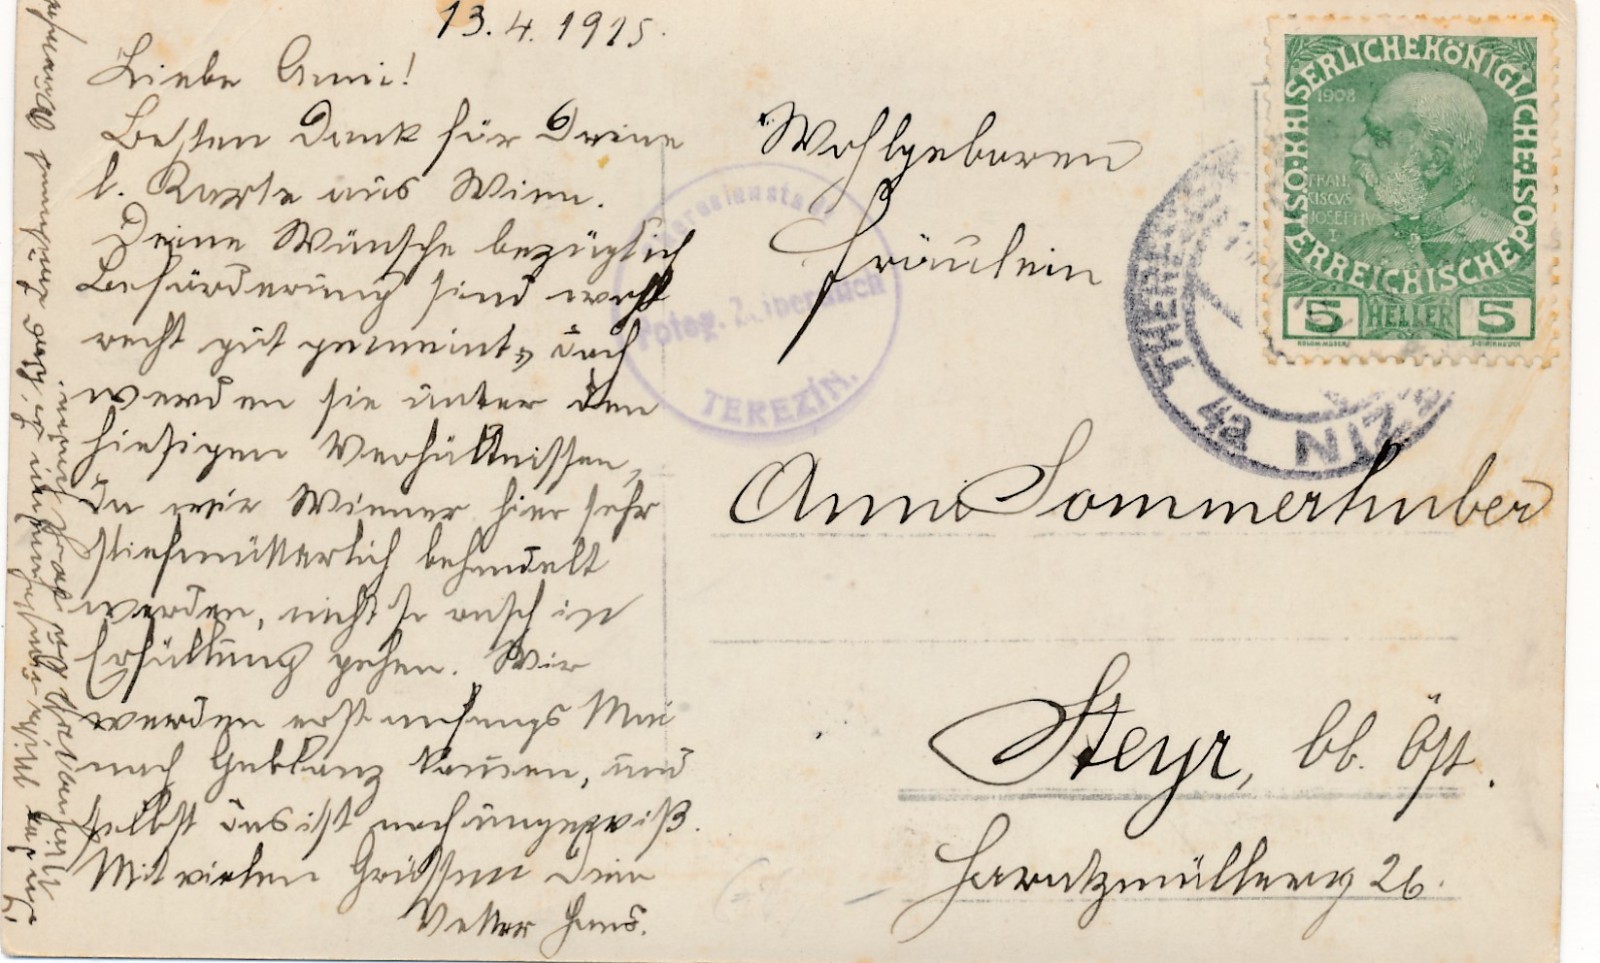 13.4.1915.
Liebe Anni!
Besten Dank für Deine
l. Karte aus Wien.
Deine Wünsche bezüglich
Beförderung sind wohl
recht gut gemeint, doch
werden sie unter den
hiesigen Verhältnissen,
da wir Wiener hier sehr
stiefmütterlich behandelt
werden, nicht so rasch in
Erfüllung gehen. Wir
werden erst anfangs Mai
nach Gablonz kommen, und
selbst das ist noch ungewiß.
Mit vielen Grüssen Dein
Vetter Hans.
Wohlgeboren
Fräulein
Anni Sommerhuber
Steyr, Ob. Öst.
Haratzmüllerg 26.
Theresienstadt
TEREZÍN.
THERESI
ZIN 4a
KAISERLICHE KÖNIGLICHE ÖSTERREICHISCHE POST
1908
FRAN
CISCVS
IOSEPHVS
I
5 HELLER 5